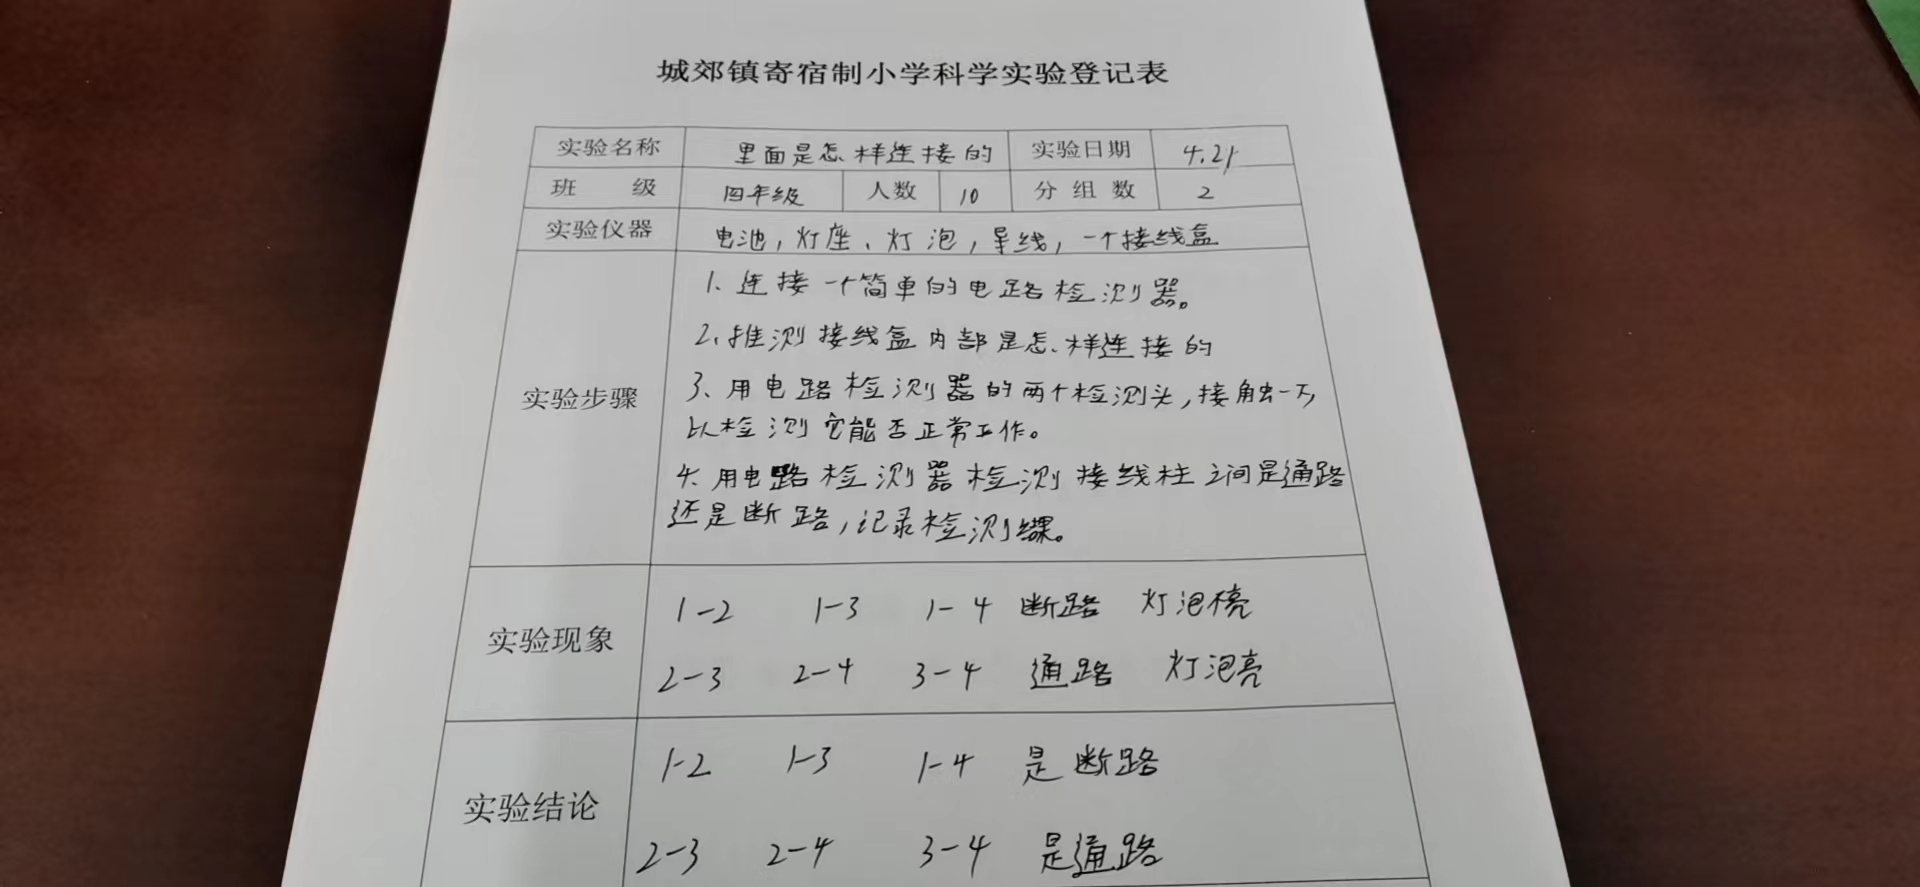 城郊镇寄宿制小学科学实验登记表
实验名称 里面是怎样连接的 实验日期 4.21
班 级 四年级 人数 10 分组数 2
实验仪器 电池，灯座、灯泡，导线，一个接线盒
实验步骤
1、连接一个简单的电路检测器。
2、推测接线盒内部是怎样连接的
3、用电路检测器的两个检测头，接触一下，
以检测它能否正常工作。
4、用电路检测器检测接线柱之间是通路
还是断路，记录检测结果。
实验现象
1-2 1-3 1-4 断路 灯泡不亮
2-3 2-4 3-4 通路 灯泡亮
实验结论
1-2 1-3 1-4 是断路
2-3 2-4 3-4 是通路